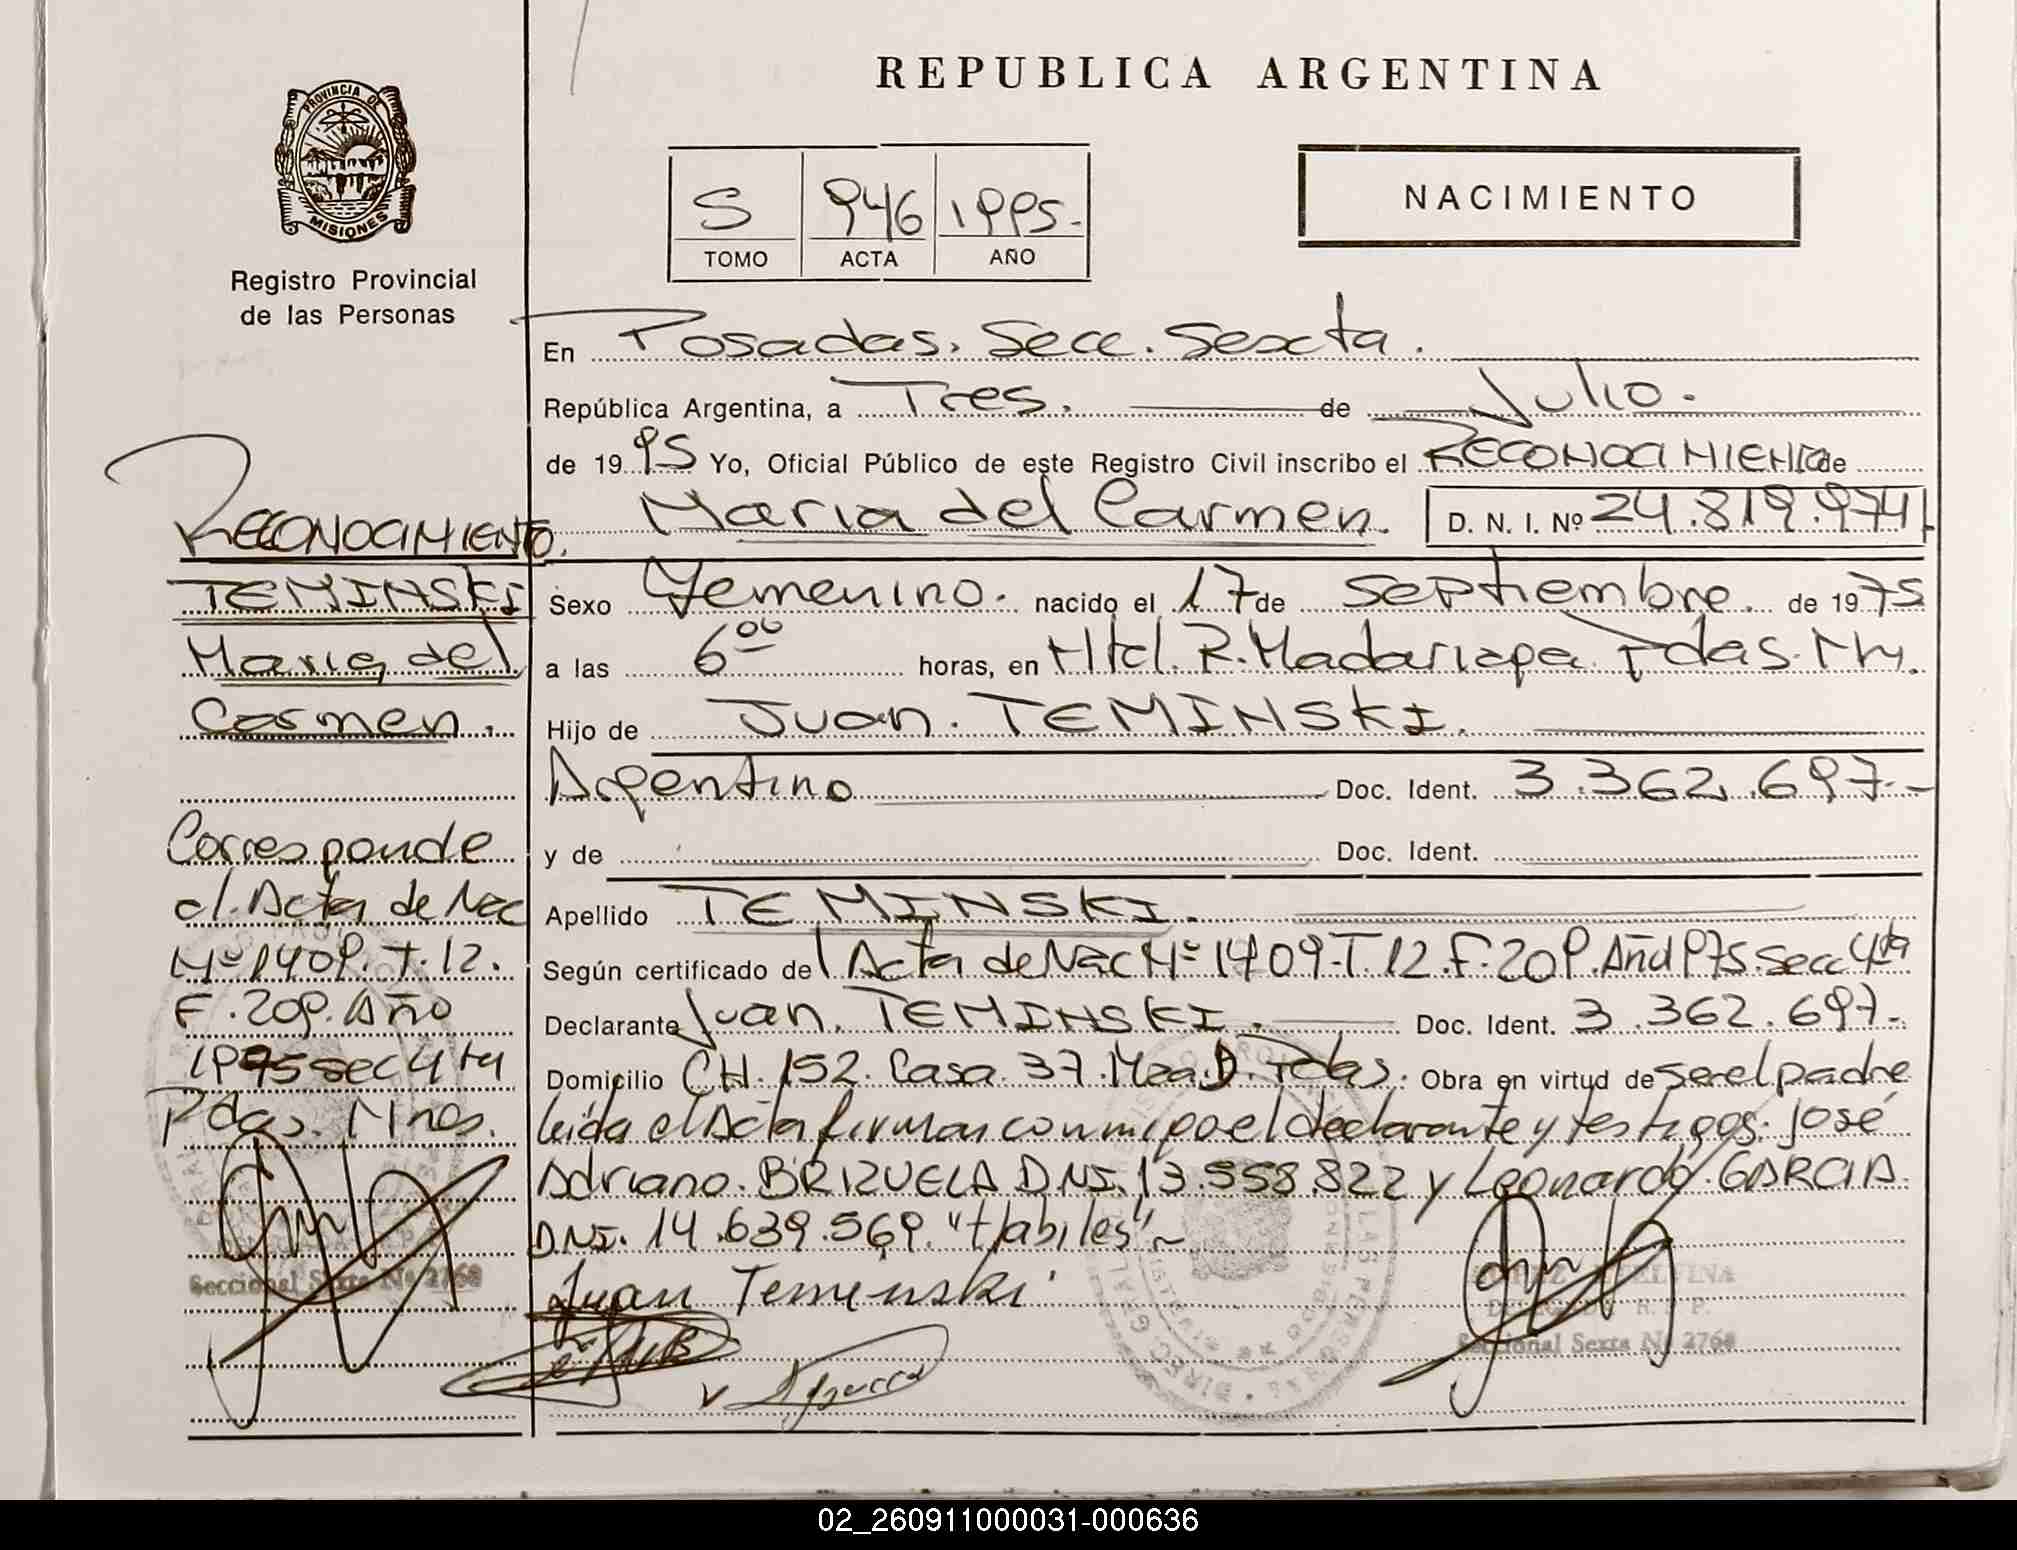 REPUBLICA ARGENTINA
PROVINCIA DE MISIONES
Registro Provincial
de las Personas
S 946 1995.
TOMO ACTA AÑO
NACIMIENTO
En Posadas. Secc. Sexta.
República Argentina, a Tres. de Julio.
de 1995 Yo, Oficial Público de este Registro Civil inscribo el RECONOCIMIENTO de
Maria del Carmen. D. N. I. Nº 24.819.974
Sexo Femenino. nacido el 17 de Septiembre. de 1975
a las 6 00 horas, en Htal. R. Madariaga Pdas. Mnes.
Hijo de Juan. TEMINSKI.
Argentino Doc. Ident. 3.362.697.-
y de Doc. Ident.
Apellido TEMINSKI.
Según certificado del Acta de Nac Nº 1409. T. 12. F. 209. Año 1975. Secc 4ta
Declarante Juan. TEMINSKI. Doc. Ident. 3.362.697.-
Domicilio CH. 152. Casa. 37. Mza. D. Pdas. Obra en virtud de ser el padre
leida el Acta firman conmigo el declarante y testigos: José
Adriano. BRIZUELA D.N.I. 13.558.822 y Leonardo. GARCIA.
D.N.I. 14.639.569. "Habiles" ~
Juan Teminski
RECONOCIMIENTO.
TEMINSKI
Maria del
Carmen.
Corresponde
al. Acta de Nac
Nº 1409. T. 12.
F. 209. Año
1975 Sec 4ta
Pdas. Mnes.
Seccional Sexta Nº 2768
DELEGADA R. P. P.
Seccional Sexta Nº 2768
02_260911000031-000636